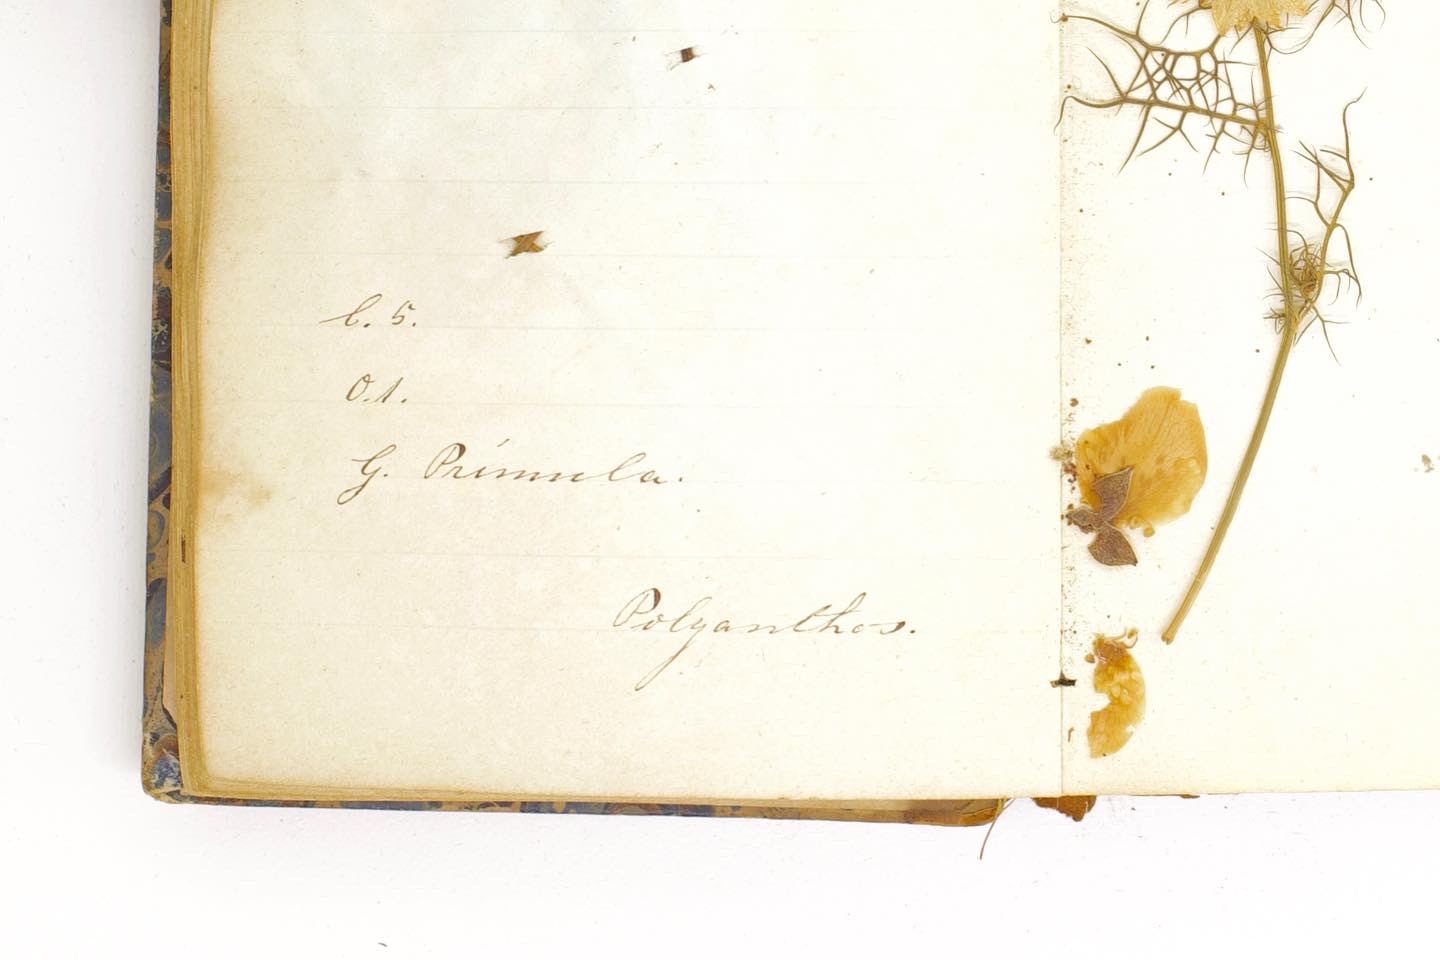 C. 5.
O. 1.
G. Primula.
Polyanthos.